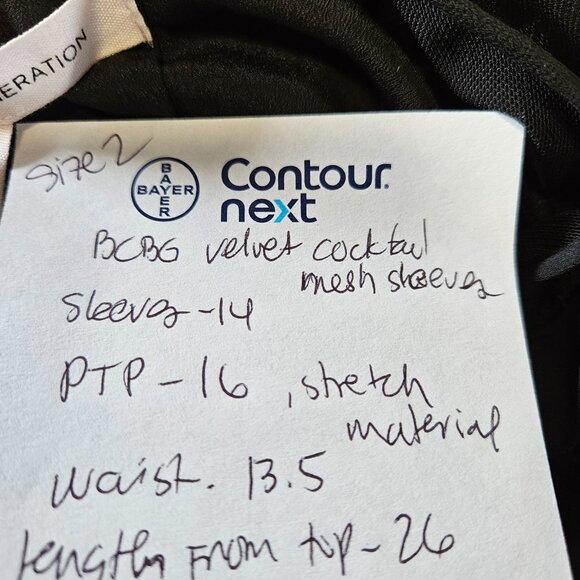 NERATION
size 2
BAYER
BAYER
Contour®
next
BCBG velvet cocktail
mesh sleeves
Sleeves -14
PTP - 16 , stretch
material
waist. 13.5
length from top - 26